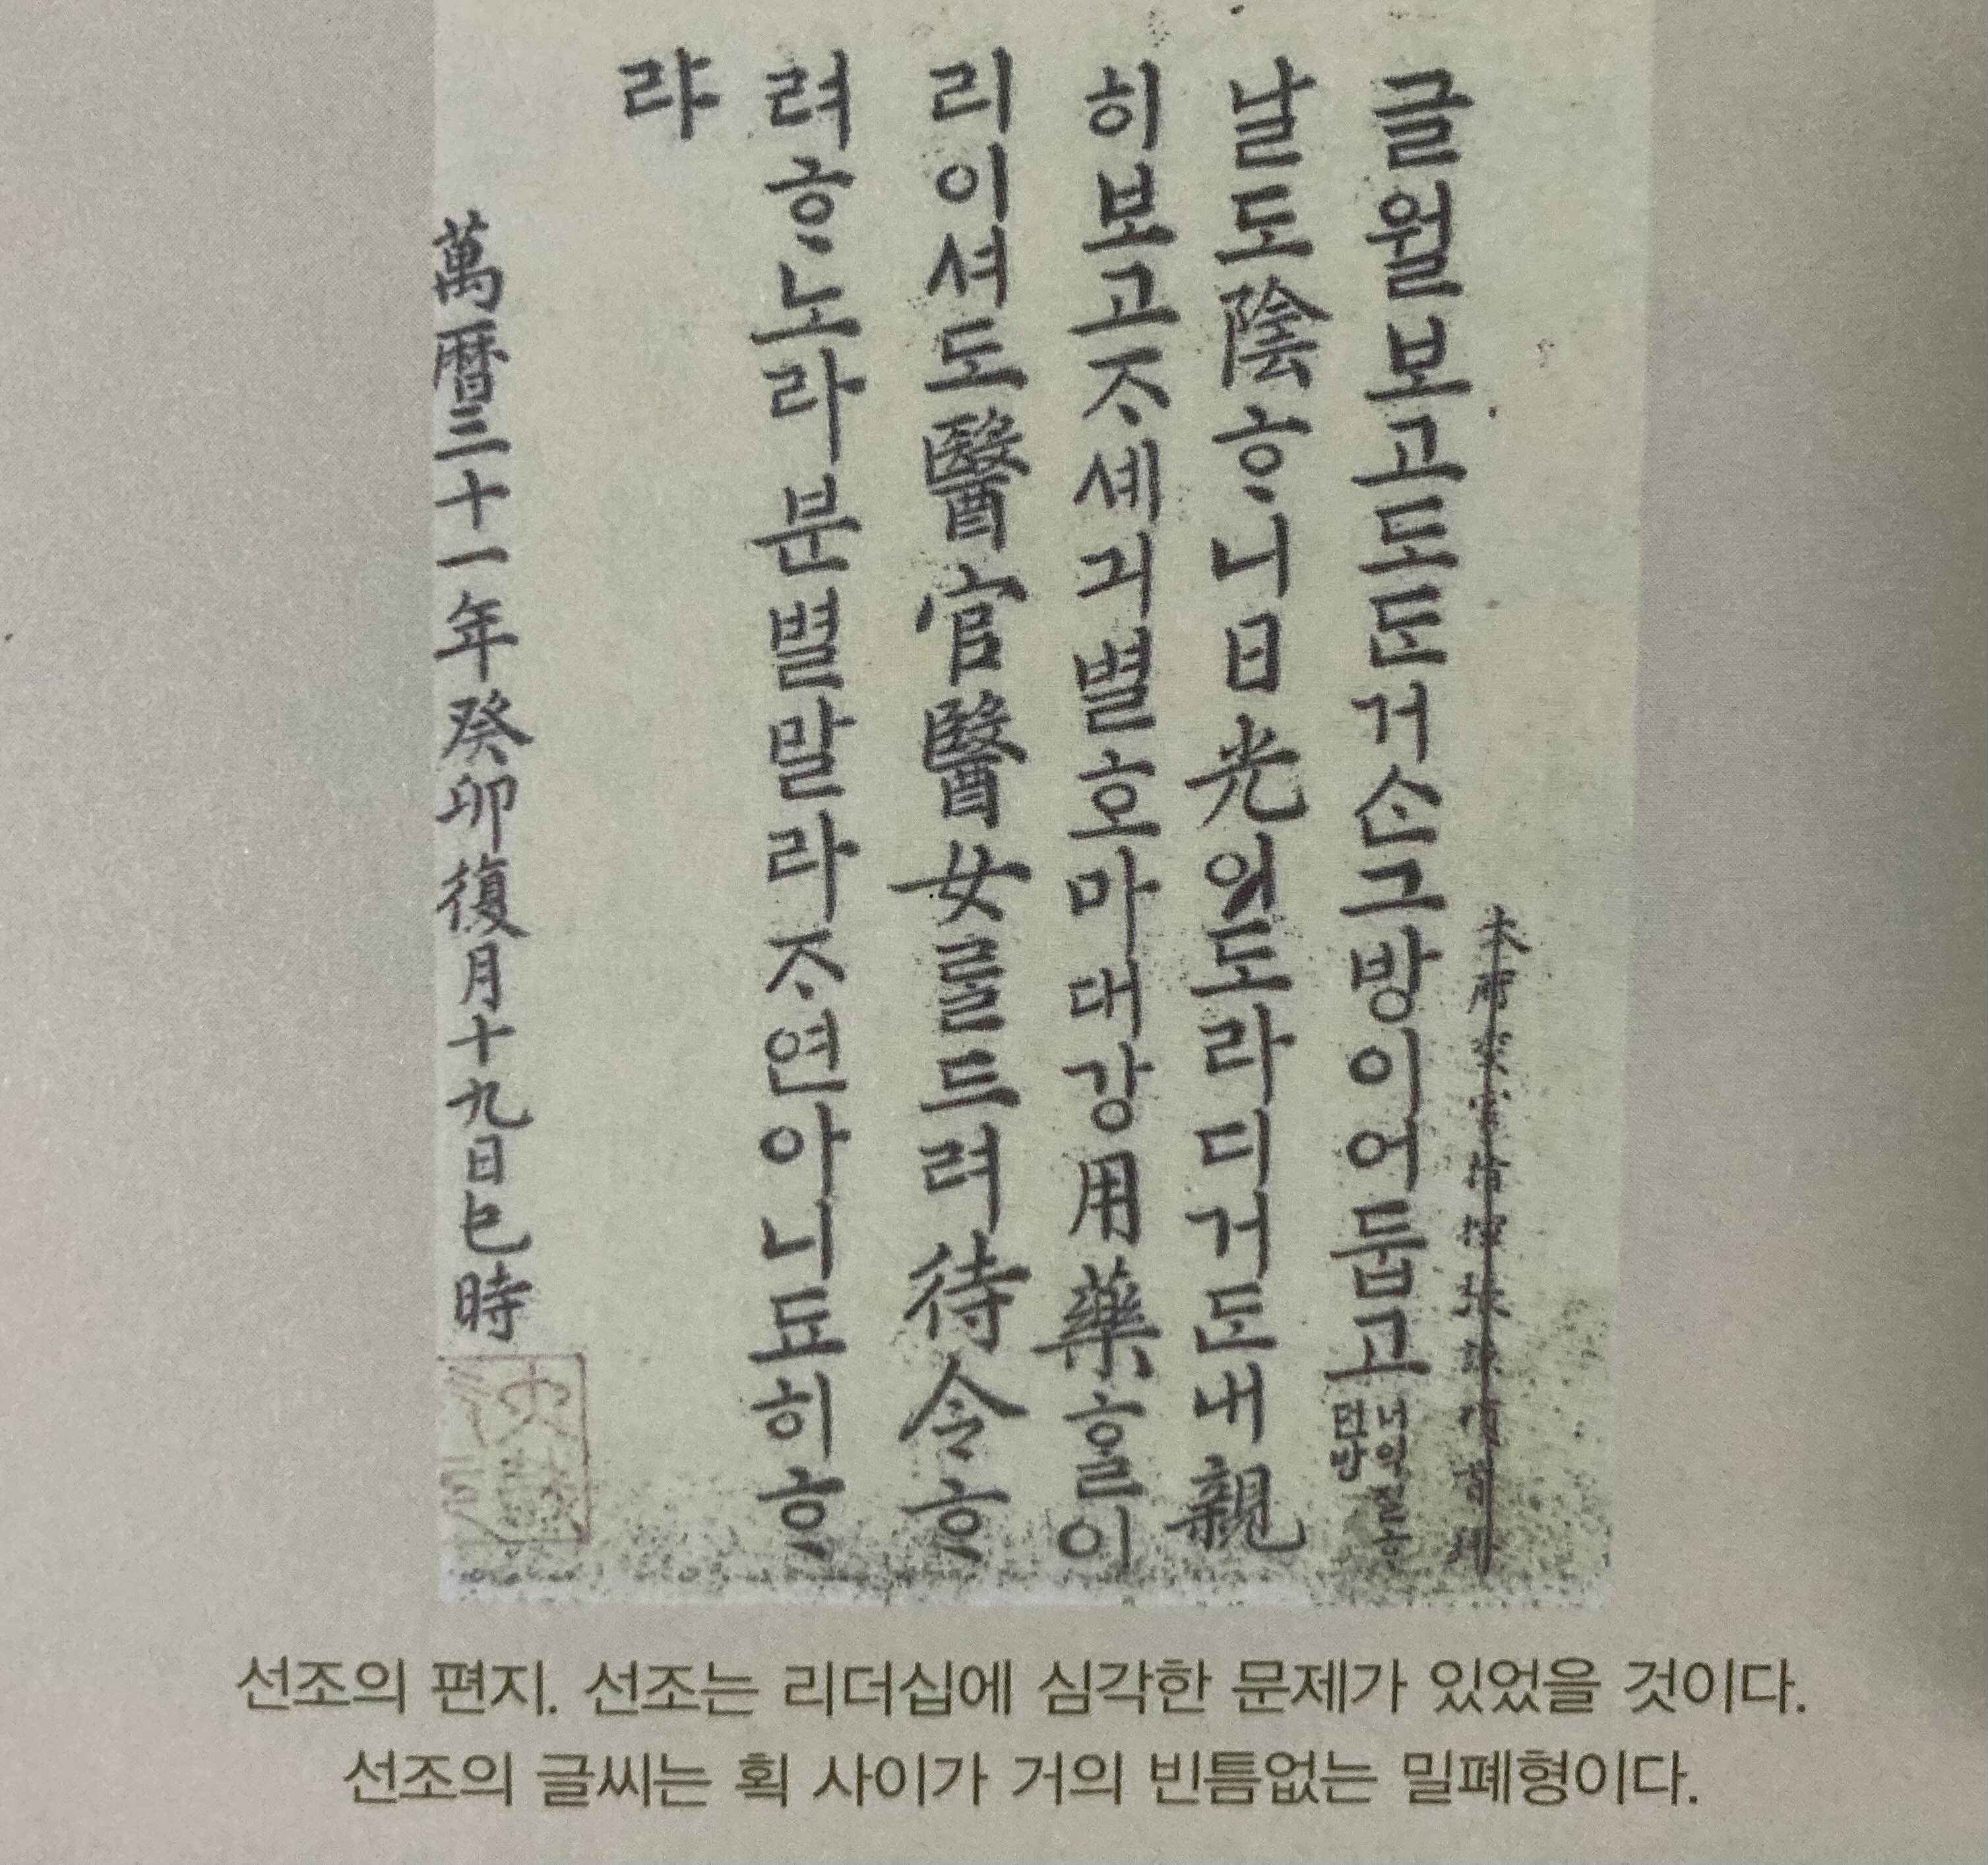 글월보고도도거ᄉᆞᆫ그방이어둡고
너역질ᄒᆞ
던방
날도陰ᄒᆞ니日光이도라디거ᄃᆞᆫ내親
히보고ᄌᆞ셰긔별호마대강用藥ᄒᆞᆯ이
리이셔도醫官醫女ᄅᆞᆯ드려待令ᄒᆞ
려ᄒᆞ노라분별말라ᄌᆞ연아니됴히ᄒᆞ
랴
萬曆三十一年癸卯復月十九日巳時
선조의 편지. 선조는 리더십에 심각한 문제가 있었을 것이다.
선조의 글씨는 획 사이가 거의 빈틈없는 밀폐형이다.